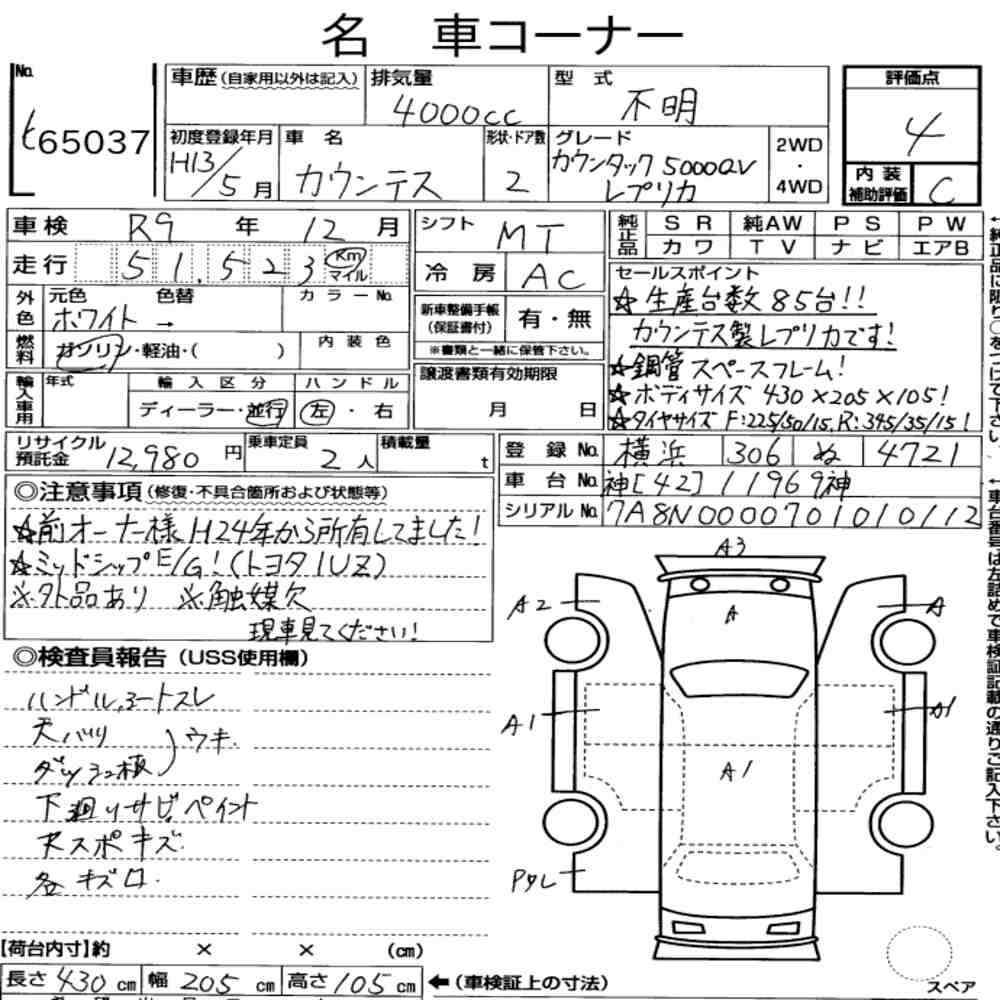 名 車コーナー
No.
ヒ65037
車歴(自家用以外は記入)
排気量
4000cc
型 式
不明
評価点
4
初度登録年月
H13/5月
車 名
カウンテス
形状・ドア数
2
グレード
カウンタック 5000QV
レプリカ
2WD
・
4WD
内 装
補助評価
C
車検 R9 年 12 月
シフト
MT
純正品
SR 純AW PS PW
カワ TV ナビ エアB
走行 51,523 Km マイル
冷 房 AC
外色
元色 色替 カラーNo.
ホワイト →
新車整備手帳
(保証書付)
有・無
※書類と一緒に保管下さい。
燃料
ガソリン・軽油・( )
内装色
輸入車用
年式
輸入区分
ハンドル
ディーラー・並行
左・右
譲渡書類有効期限
月 日
セールスポイント
☆生産台数85台!!
カウンテス製レプリカです!
☆鋼管スペースフレーム!
☆ボディサイズ 430×205×105!
☆タイヤサイズ F:225/50/15,R:345/35/15!
リサイクル
預託金
12,980円
乗車定員
2人
積載量
t
登録No. 横浜 306 ぬ 4721
車台No. 神[42]11969神
シリアルNo. 7A8N0000701010112
◎注意事項(修復・不具合箇所および状態等)
☆前オーナー様 H24年から所有してました!
☆ミッドシップE/G!(トヨタ1UZ)
※外品あり ※触媒欠
現車見てください!
◎検査員報告(USS使用欄)
ハンドル,シートスレ
天バリ
ダッシュ板
)ウキ
下廻りサビ,ペイント
Rスポキズ
各キズロ
A3
A2
A
A
A1
A1
A1
PタレT
【荷台内寸】約 × × (cm)
長さ 430 cm 幅 205 cm 高さ 105 cm
←(車検証上の寸法)
スペア
←純正品に限り○をつけて下さい。
←車台番号は左詰めで車検証記載の通りご記入下さい。